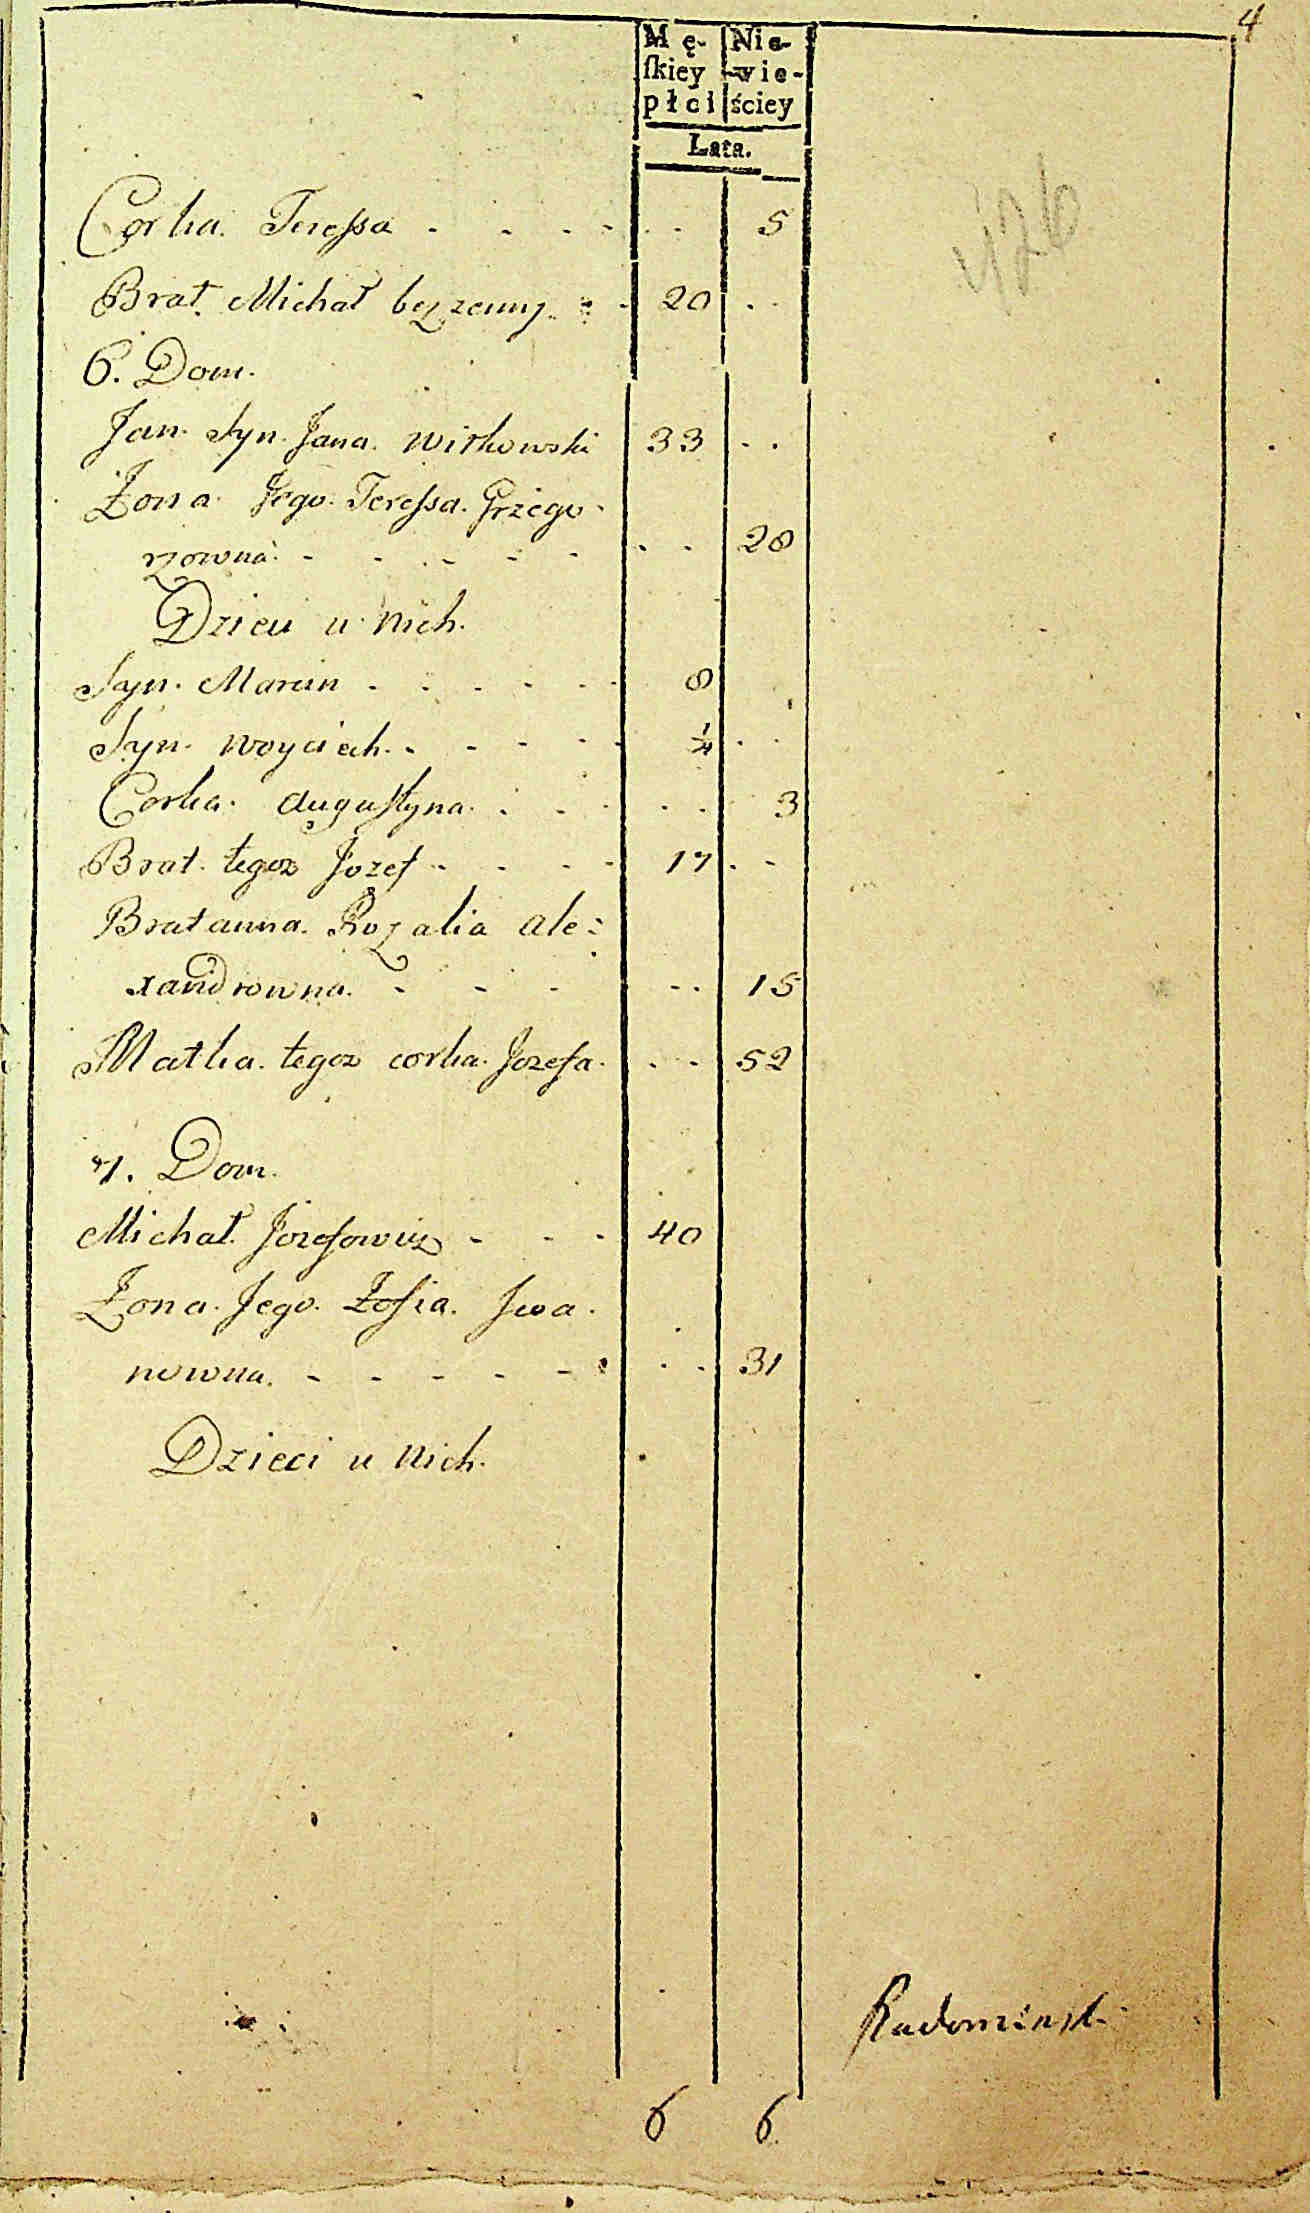 4
Mę- Nie-
ſkiey wie-
płci ściey
Lata.
Corka. Teressa - - - - . . 5
Brat. Michał bezzenny - - 20 . .
6. Dom.
Jan. Syn. Jana. Witkowski 33 . .
Żona Jego. Teressa. Grzego-
rzowna. - - - - - . . 28
Dzieci u nich.
Syn. Marcin - - - - - 8
Syn. Woyciech. - - - - 1/4 . .
Corka. Augustyna. - - - . . 3
Brat. tegoz Jozef - - - - 17 . -
Bratanna. Rozalia Ale:
xandrowna. - - - - . . 15
Matka. tegoz corka. Jozefa. . . 52
7. Dom.
Michał. Jozefowicz - - - 40
Żona. Jego. Zofia. Iwa.
nowna. - - - - - . . 31
Dzieci u nich.
Radominsk
6 6